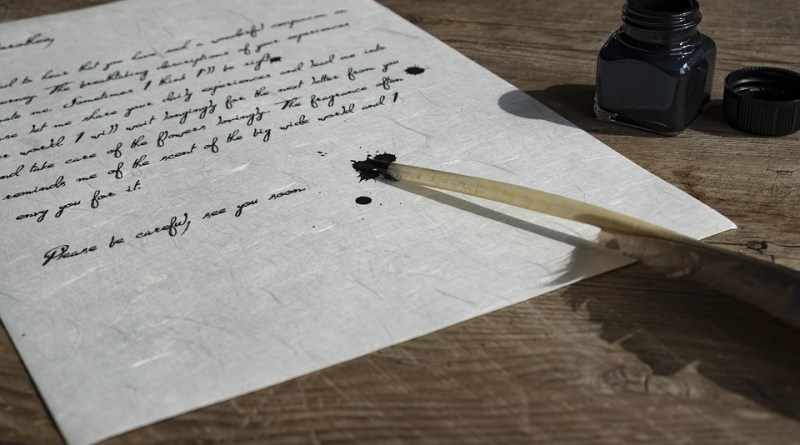 to hear that you have such a wonderful companion on
The breathtaking descriptions of your experiences
me. Sometimes I think I'll be right
let me share your daily experiences and lead me into
world I will wait longingly for the next letter from you
take care of the flowers lovingly. The fragrance often
reminds me of the scent of the big wide world and I
envy you for it.
Please be careful, see you soon.